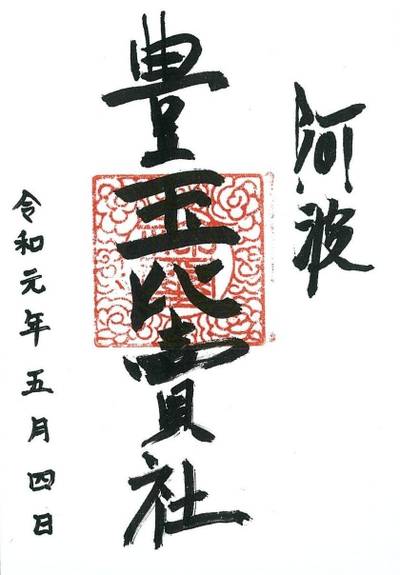 阿波
豊玉比賣社
令和元年五月四日